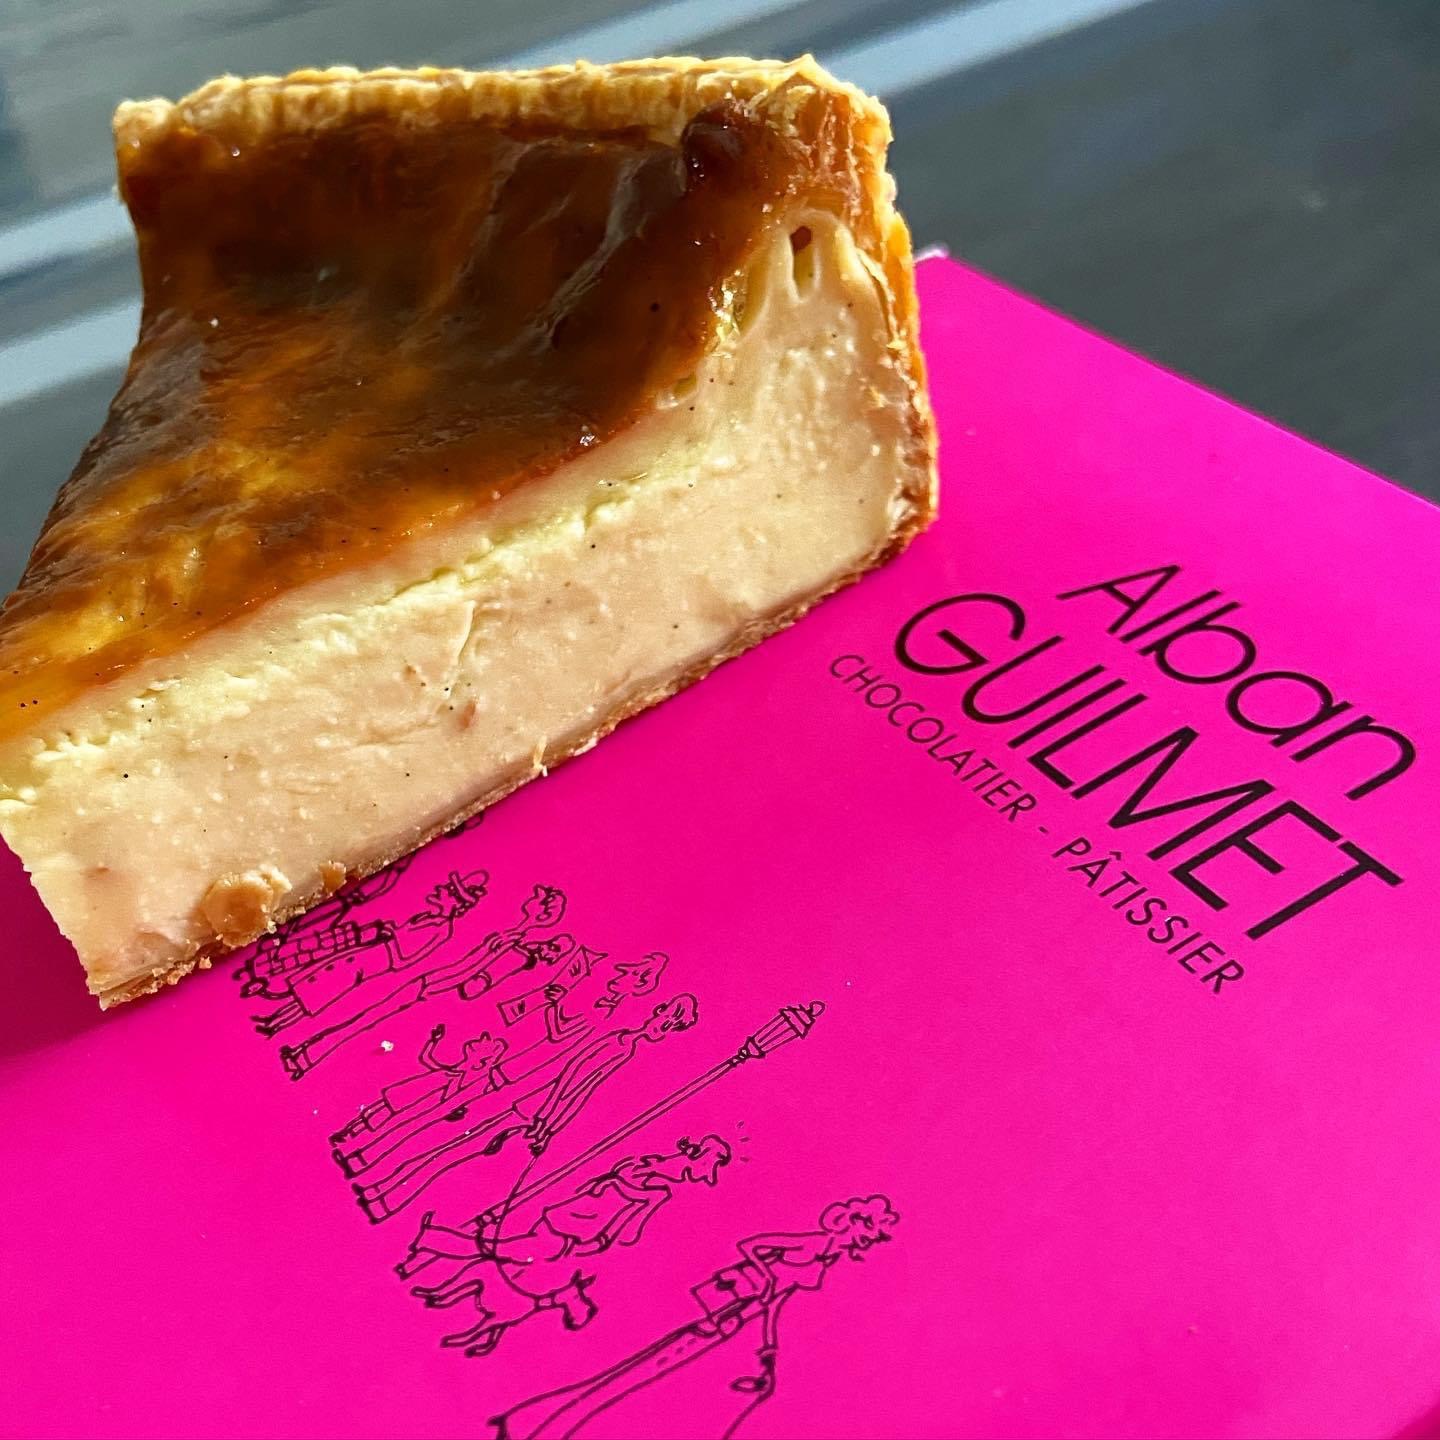 Alban
GUILMET
CHOCOLATIER - PÂTISSIER